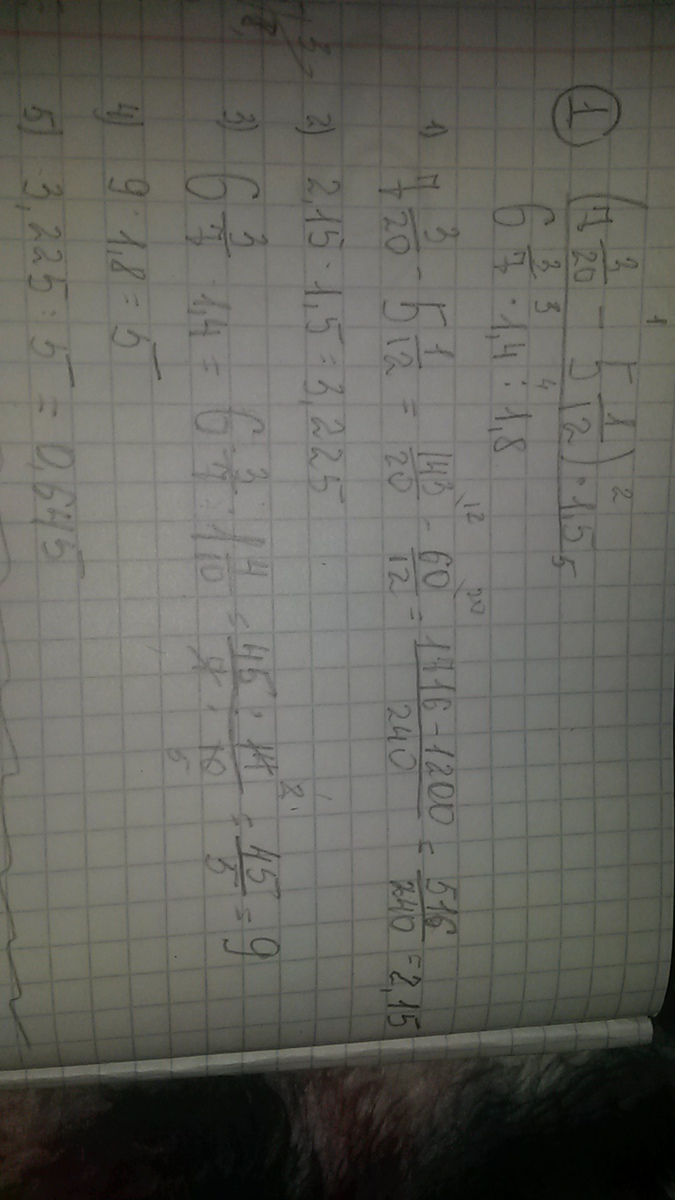 1 2
① (7 3/20 - 5 1/12) · 1,5 5
3 4
6 3/7 · 1,4 : 1,8
1) 7 3/20 - 5 1/12 = 143/20 \12 - 60/12 \20 = 1716-1200/240 = 516/240 = 2,15
2) 2,15 · 1,5 = 3,225
3) 6 3/7 · 1,4 = 6 3/7 : 1 4/10 = 45 · 14 2/7 · 10 5 = 45/5 = 9
4) 9 · 1,8 = 5
5) 3,225 : 5 = 0,645